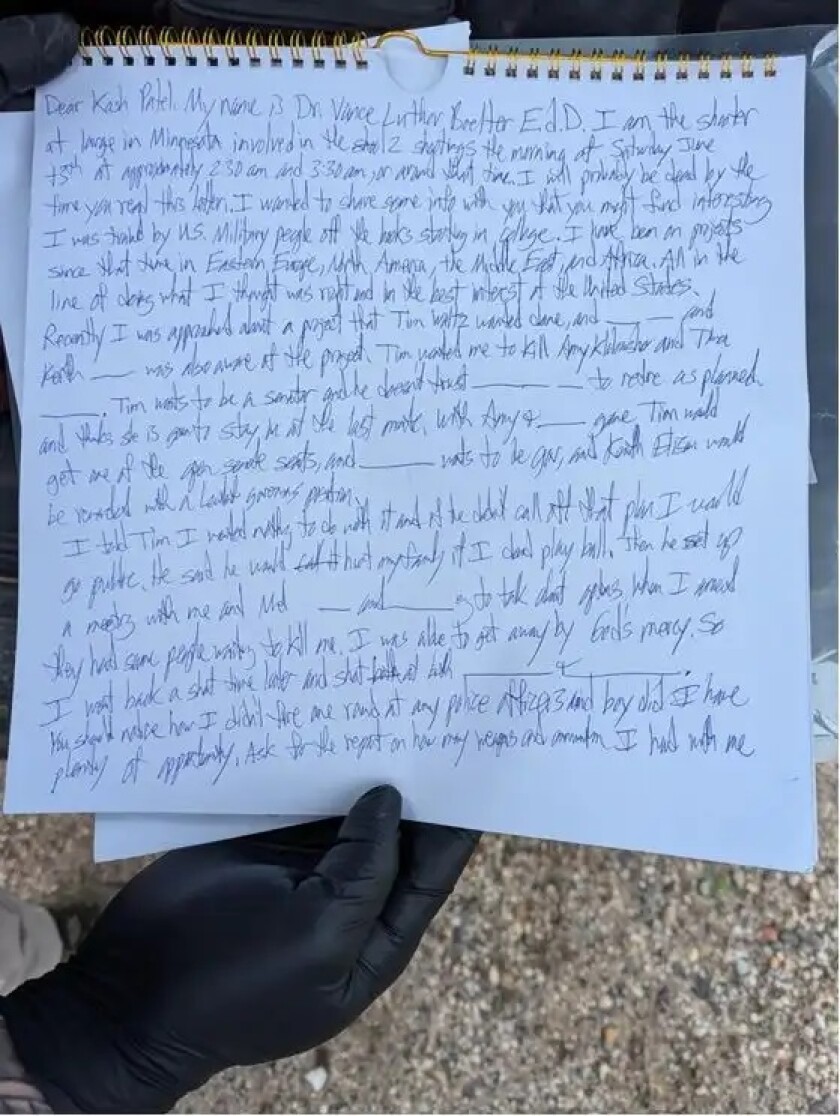 Dear Kash Patel. My name is Dr. Vance Luther Boelter E.d.D. I am the shooter
at large in Minnesota involved in the 2 shootings the morning of Saturday June
13th at approximately 2:30 am and 3:30am, or around that time. I will probably be dead by the
time you read this letter. I wanted to share some info with you that you might find interesting
I was trained by U.S. Military people off the books starting in college. I have been on projects
since that time in Eastern Europe, North America, the Middle East, and Africa. All in the
line of doing what I thought was right and in the best interest of the United States.
Recently I was approached about a project that Tim Waltz wanted done, and ____ ___ and
Keith ____ was also aware of the project. Tim wanted me to kill Amy Klobucher and Tina
_____. Tim wants to be a senator and he doesn't trust ________ ___ to retire as planned
and thinks she is gonna stay in at the last minute. With Amy & ____ gone Tim would
get one of the open senate seats, and ______ wants to be gov, and Keith would
be rewarded with a governors position.
I told Tim I wanted nothing to do with it and if he didn't call off that plan I would
go public. He said he would hurt my family if I didn't play ball. Then he set up
a meeting with me and ___ and ______ to talk about when I arrived
they had some people waiting to kill me. I was able to get away by God's mercy. So
I went back a short time later and shot at both ________ & ________.
You should notice how I didn't fire one round at any police officers and boy did I have
plenty of opportunity. Ask for the report on how many weapons and I had with me